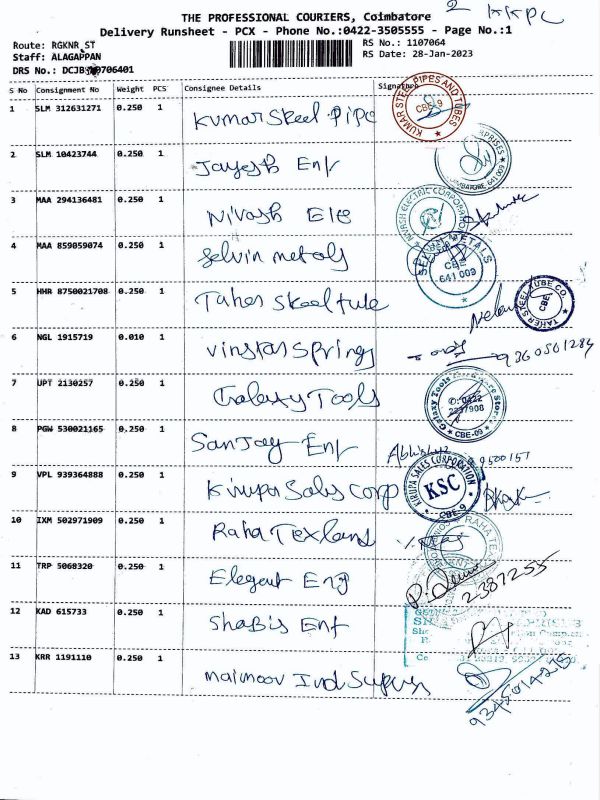 2 KKPC
THE PROFESSIONAL COURIERS, Coimbatore
Delivery Runsheet - PCX - Phone No.:0422-3505555 - Page No.:1
Route: RGKNR_ST
RS No.: 1107064
Staff: ALAGAPPAN
RS Date: 28-Jan-2023
S No Consignment No Weight PCS Consignee Details
1 SLM 312631271 0.250 1 Kumar Steel Pipe
KUMAR STEEL PIPES AND TUBES CBE-9
2 SLM 10423744 0.250 1 Jayesh Ent
3 MAA 294136481 0.250 1 Nivash Ele
NIVASH ELECTRIC CORPORATION
4 MAA 859059074 0.250 1 Selvin metals
METALS CBE 641 009
5 HHR 8750021708 0.250 1 Taher Steel tube
TAHER STEEL TUBE CO. CBE
6 NGL 1915719 0.010 1 vinstar springs
9360501284
7 UPT 2130257 0.250 1 Galaxy Tools
Galaxy Tools Hardware Stores 0422 2237908 CBE-09
8 PGW 530021165 0.250 1 Sanjay Ent
9 VPL 939364888 0.250 1 Kirupa Sales Corp
KIRUPA SALES CORPORATION KSC CBE-9
10 IXM 502971909 0.250 1 Raha Texland
11 TRP 5068320 0.250 1 Elegant Eng
2387255
12 KAD 615733 0.250 1 Shabis Ent
13 KRR 1191110 0.250 1 maimoon Ind Supply